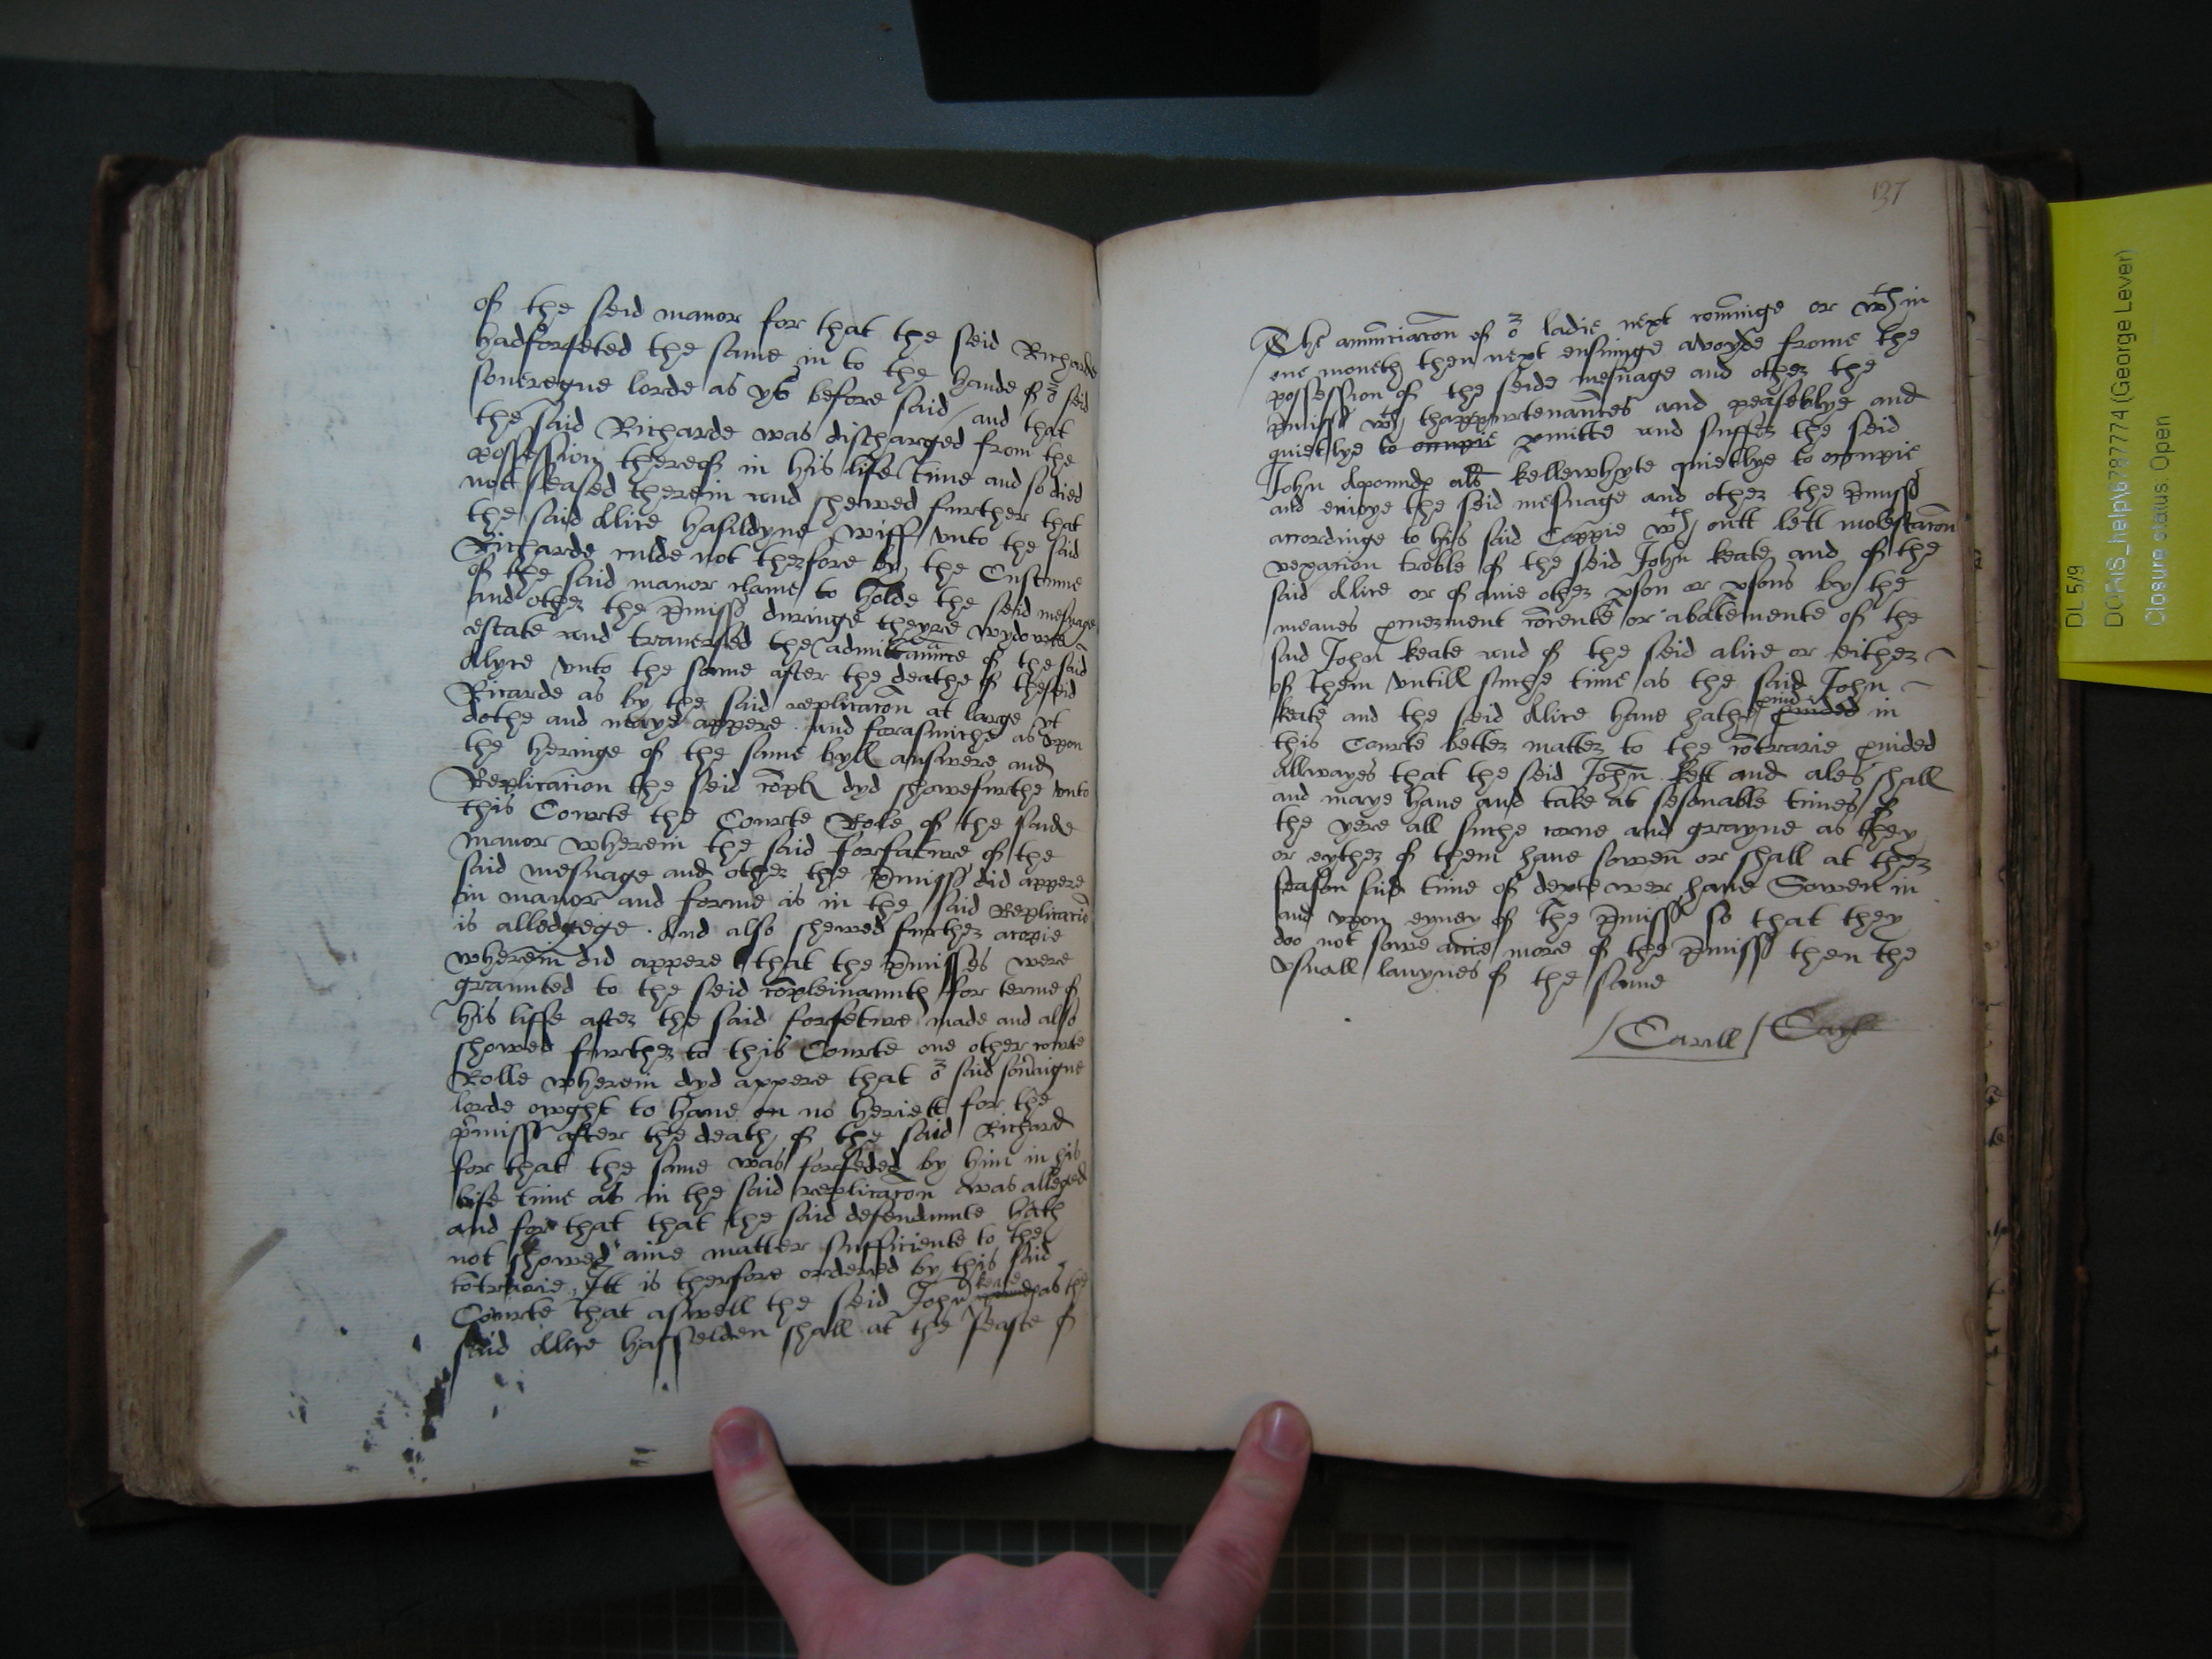 of the seid manor for that the seid Richarde
had forfeted the same in to the hande of oʳ seid
souereyne lorde as ys before said / and that
the said Richarde was discharged from the
possession thereof in his life time and so died
nott seased therein and shewed further that
the said Alice hasildyne wiff vnto the said
Richarde culde not therfore by the Custume
of the said manor clame to holde the seid mesuage
and other the p̄miss duringe theyre wydowes
estate and trauersed the admittaunce of the said
Alyce vnto the same after the deathe of the seid
Ricarde as by the said replicac̄on at large yt
dothe and maye appere . And forasmiche as vpon
the heringe of the same byll answere and
Replicacion the seid compl dyd shawefurthe vnto
this Courte the Courte Role of the saide
manor wherein the said forfature of the
said mesuage and other the p̄miss did appere
in manor and forme as in the said Replicac̄io
is alledgeige . And also shewed further acopie
wherein did appere that the p̄misses were
graunted to the seid compleinaunth for terme of
his liffe after the said forfeture made and also
showed further to this Courte one other courte
Rolle wherein dyd appere that oʳ said sou̾aigne
lorde owght to haue on no heriett for the
p̄miss after the death of the said Richard
for that the same was forfeded by him in his
life time as in the said replicac̄on was alleged
and for that that the said defendaunte hath
not showed anie matter sufficiente to the
contrarie . Itt is therfore ordered by this said
Courte that aswell the seid John keate as the
said Alice hasselden shall at the feaste of
137
The annunciac̄on of oʳ ladie next comminge or wᵗʰin
one moneth then next ensuinge avoyde frome the
possession of the seide mesuage and other the
p̄miss wᵗʰ thappurtenances and peaseblye and
quietlye to occupie p̱mitte and suffer the seid
John als kellewhyte quietlye to occupie
and enioye the seid mesuage and other the p̄miss
accordinge to his said Coppie wᵗʰ outt lett molestac̄on
vexacion troble of the seid John keate and of the
said Alice or of anie other p̱son or p̱sons by the
meanes p̱curement concente or abatemente of the
said John keate and of the seid alice or either
of them vntill suche time as the said John
keate and the seid Alice haue hathe in
this Courte better matter to the contrarie p̱uided
Allwayes that the seid John kett and ales shall
and maye haue and take at sesonable times of
the yere all suche corne and grayne as they
or eyther of them haue sowen or shall at ther
season time of haue Sowen in
and vpon eyney of the p̄miss so that they
doo not sowe anie more of the p̄miss then the
vsuall laynes of the same
Carill /
DL 5/9
DORIS_help\6787774 (George Lever)
Closure status: Open